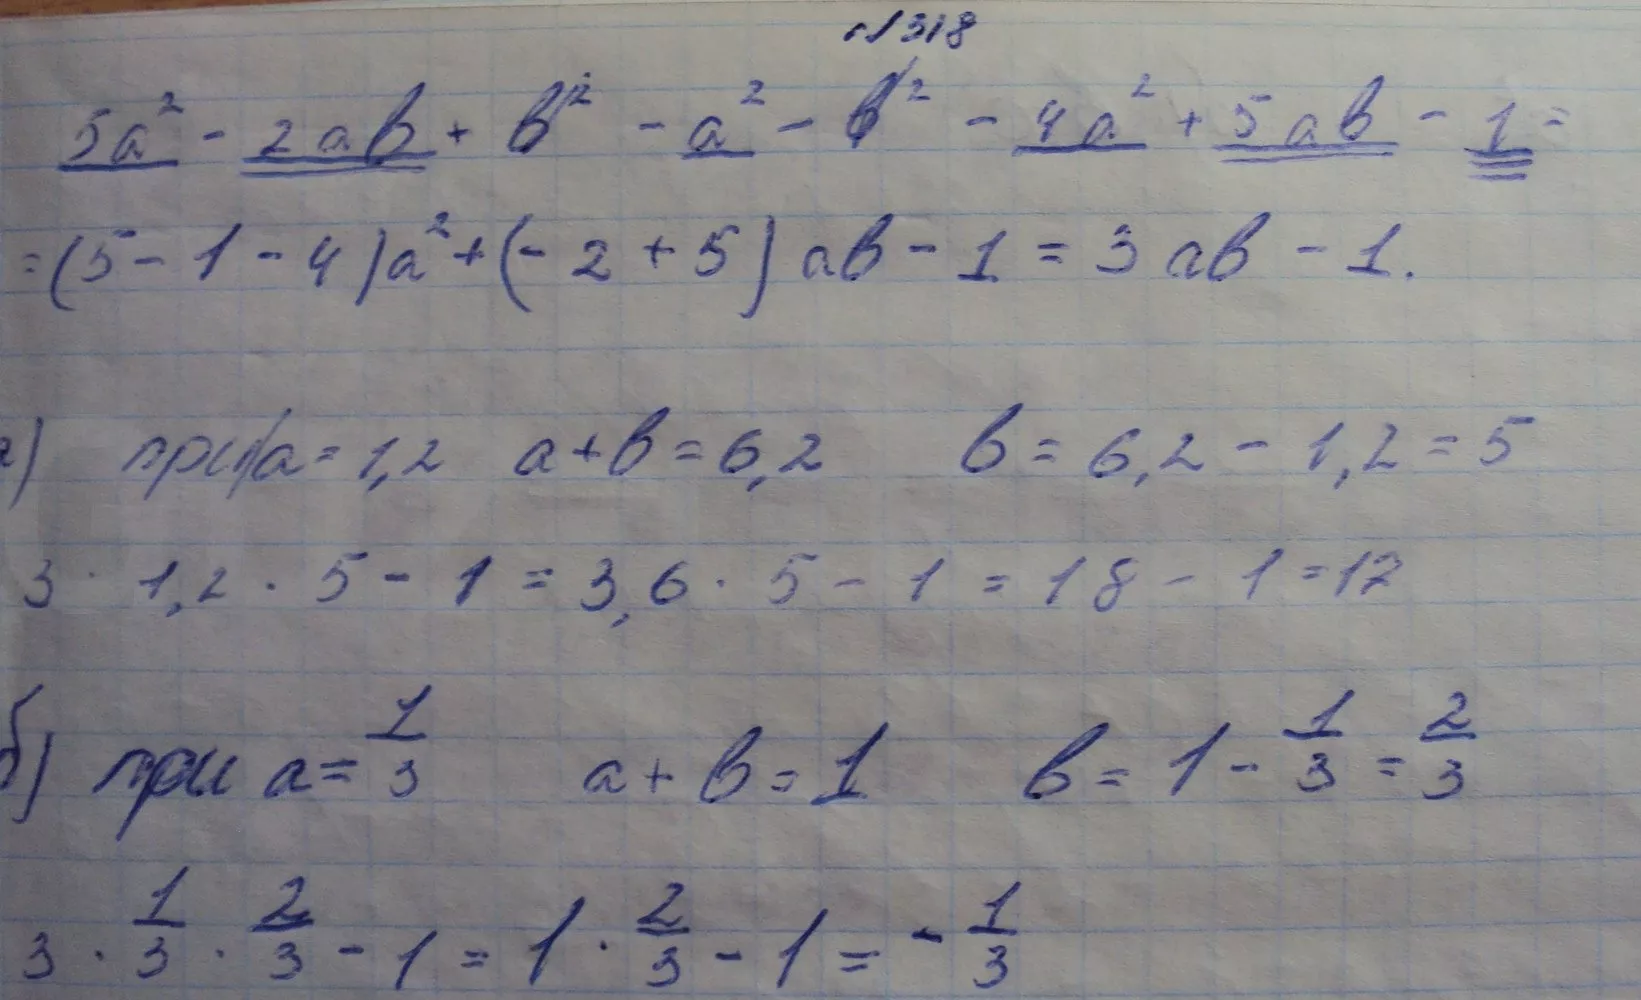 №318
5a² - 2ab + b² - a² - b² - 4a² + 5ab - 1 =
= (5 - 1 - 4)a² + (- 2 + 5) ab - 1 = 3 ab - 1.
а) при a = 1,2 a + b = 6,2 b = 6,2 - 1,2 = 5
3 · 1,2 · 5 - 1 = 3,6 · 5 - 1 = 18 - 1 = 17
б) при a = 1/3 a + b = 1 b = 1 - 1/3 = 2/3
3 · 1/3 · 2/3 - 1 = 1 · 2/3 - 1 = - 1/3